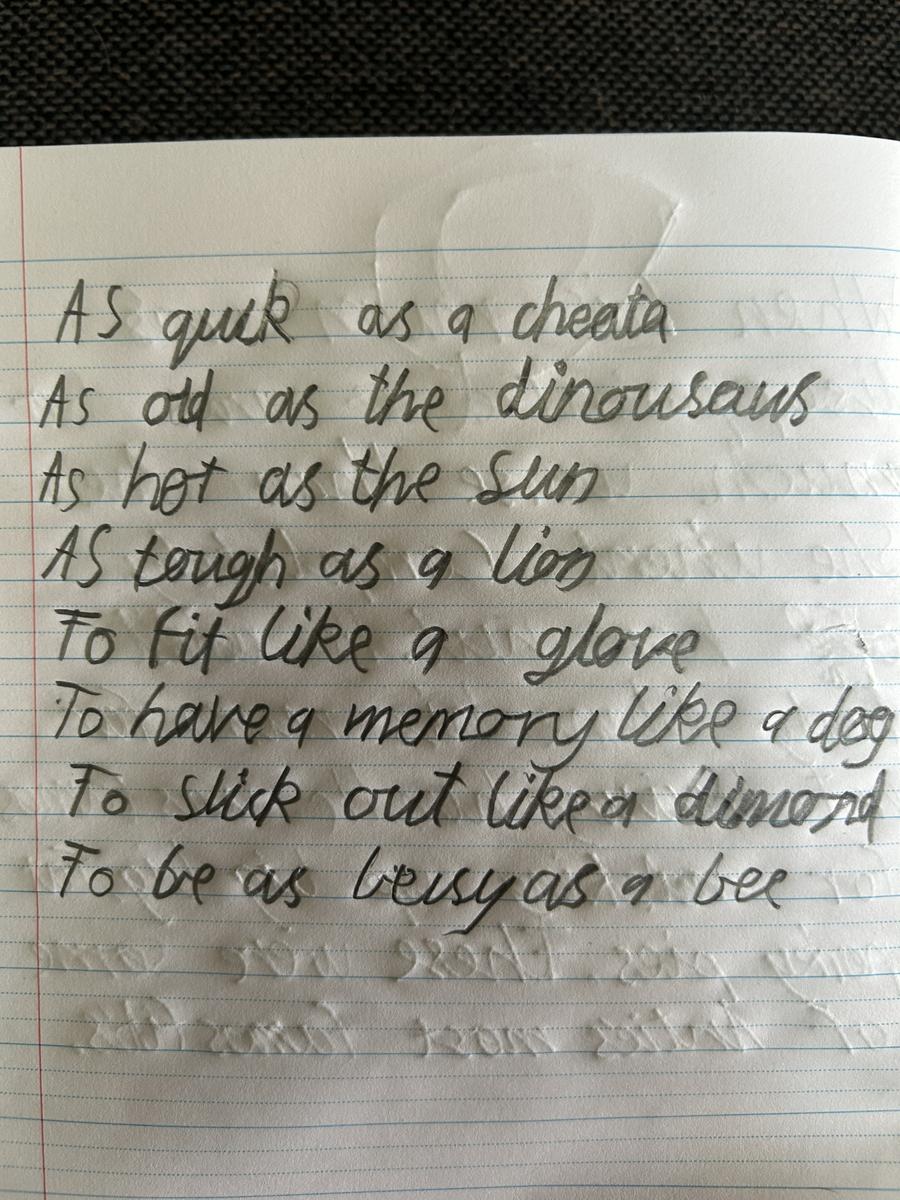 As quick as a cheata
As old as the dinousaus
As hot as the sun
As tough as a lion
To fit like a glove
To have a memory like a dog
To stick out like a dimond
To be as beusy as a bee